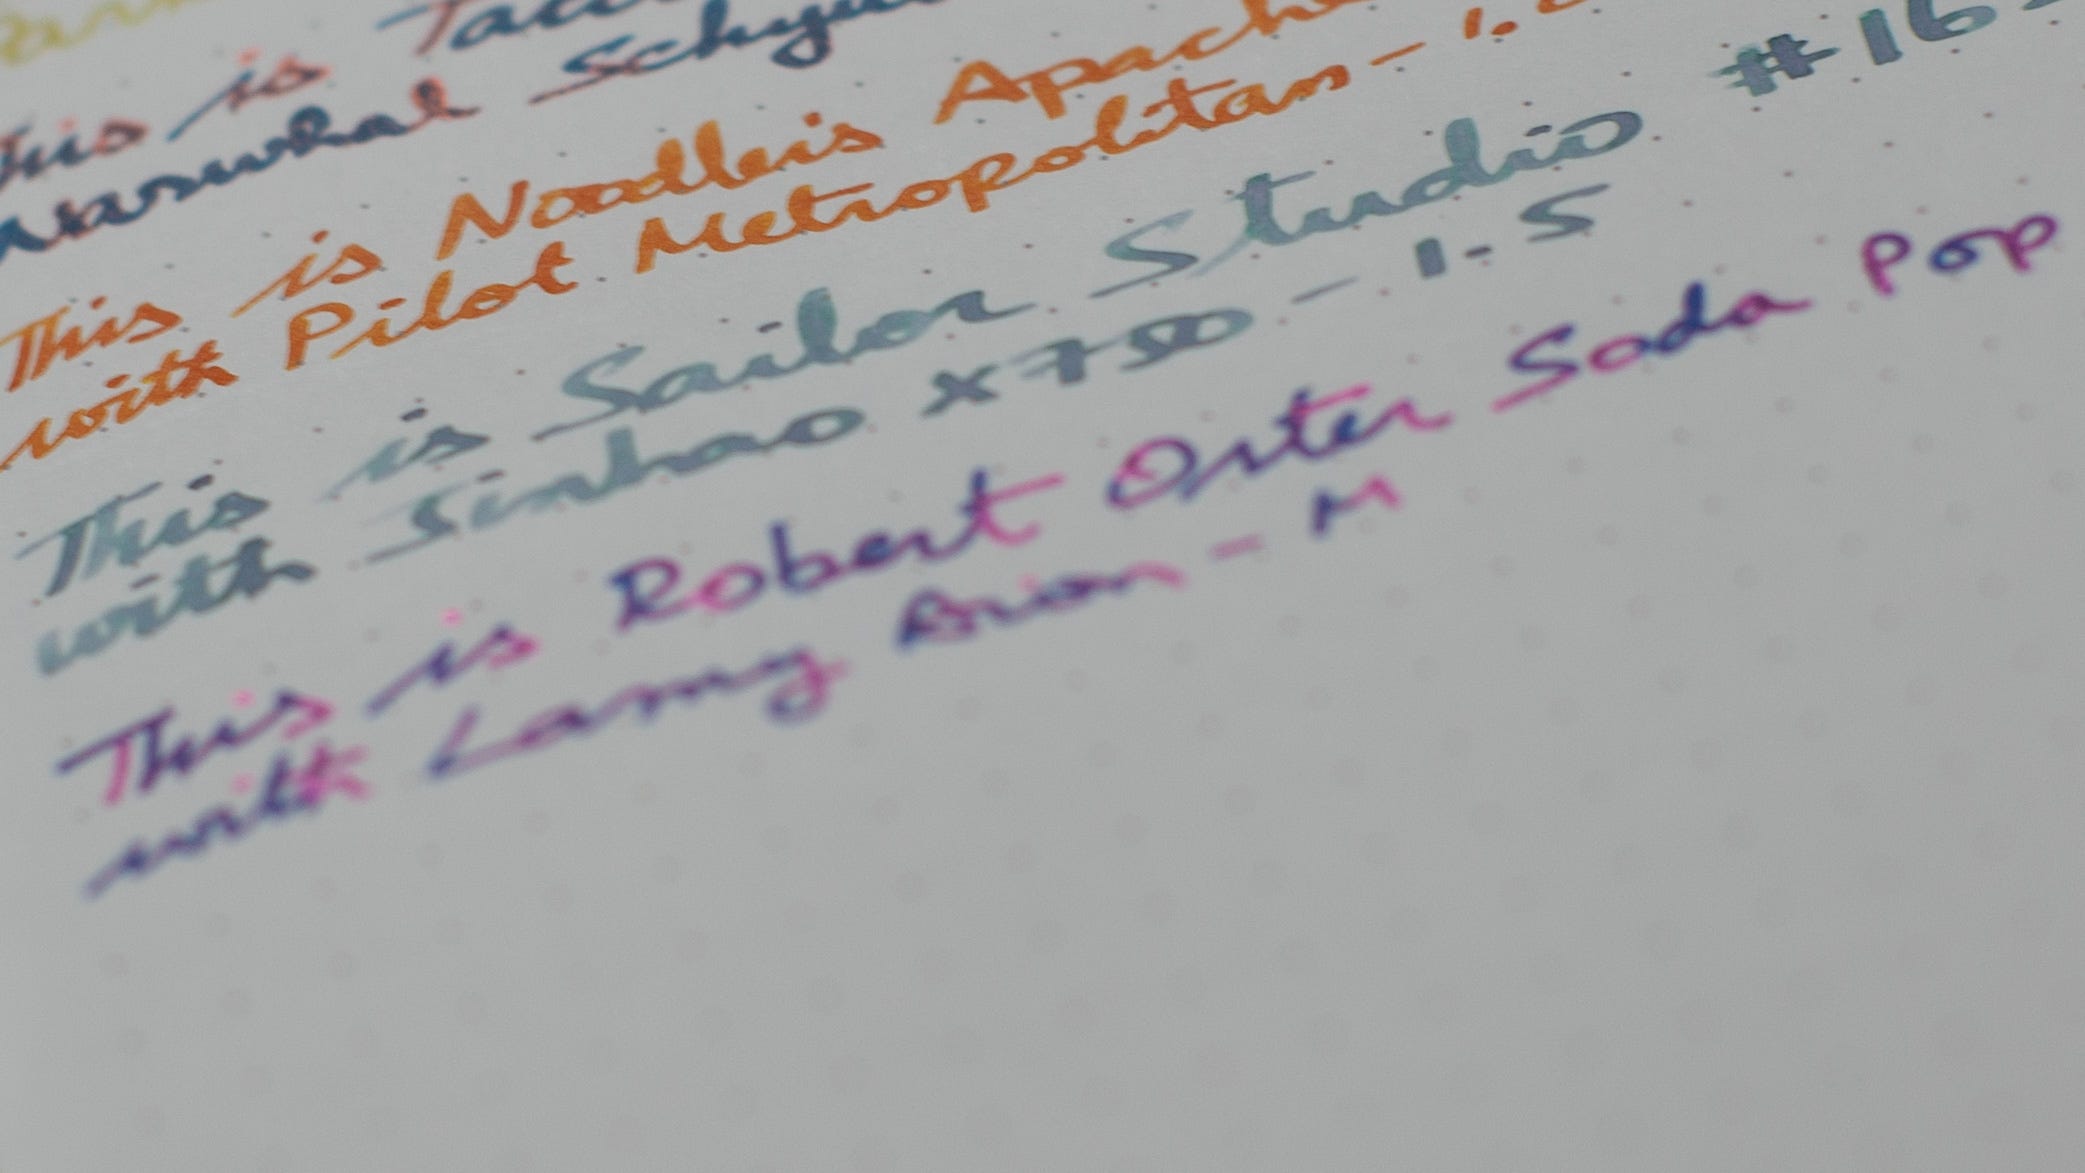 This is
Narwhal
This is Noodler's Apache
with Pilot Metropolitan - 1.
This is Sailor Studio #16
with Jinhao x750 - 1.5
This is Robert Oster Soda Pop
with Lamy Orion - M